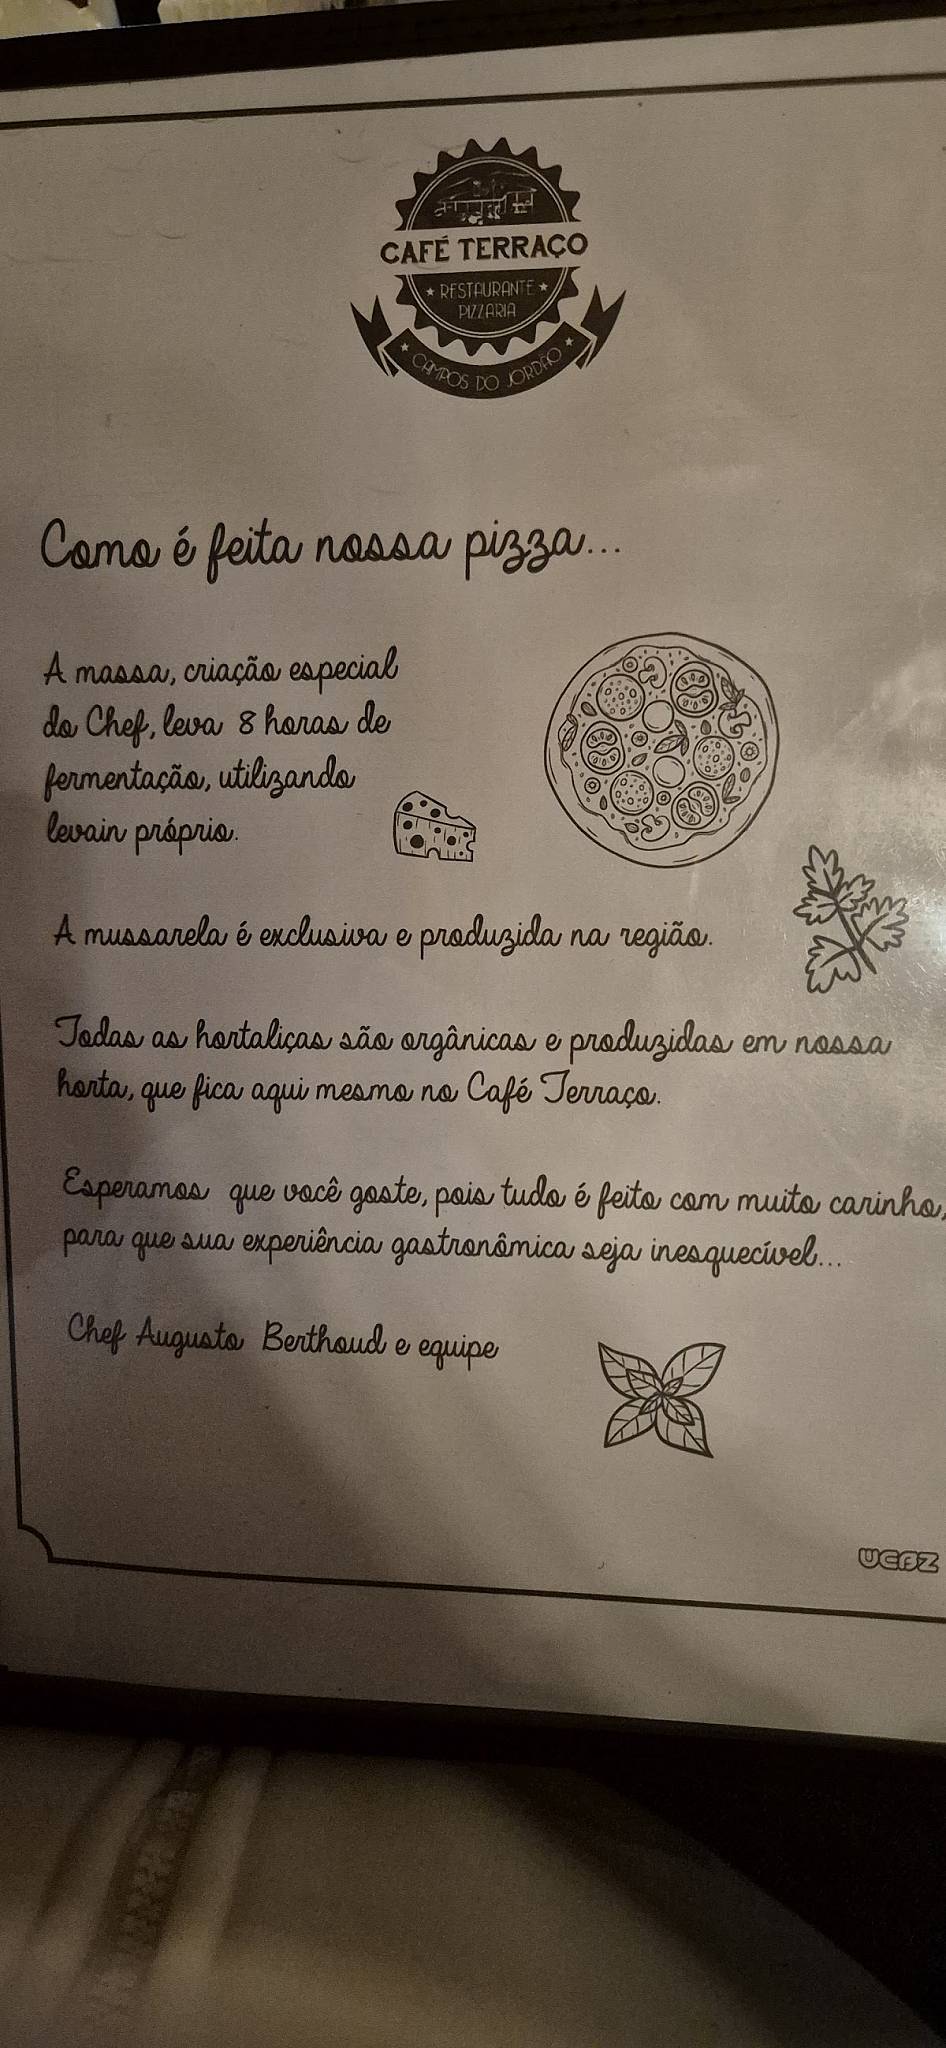 CAFÉ TERRAÇO
RESTAURANTE
PIZZARIA
CAMPOS DO JORDÃO
Como é feita nossa pizza...
A massa, criação especial
do Chef, leva 8 horas de
fermentação, utilizando
levain próprio.
A mussarela é exclusiva e produzida na região.
Todas as hortaliças são orgânicas e produzidas em nossa
horta, que fica aqui mesmo no Café Terraço.
Esperamos que você goste, pois tudo é feito com muito carinho,
para que sua experiência gastronômica seja inesquecível...
Chef Augusto Berthoud e equipe
UCBZ